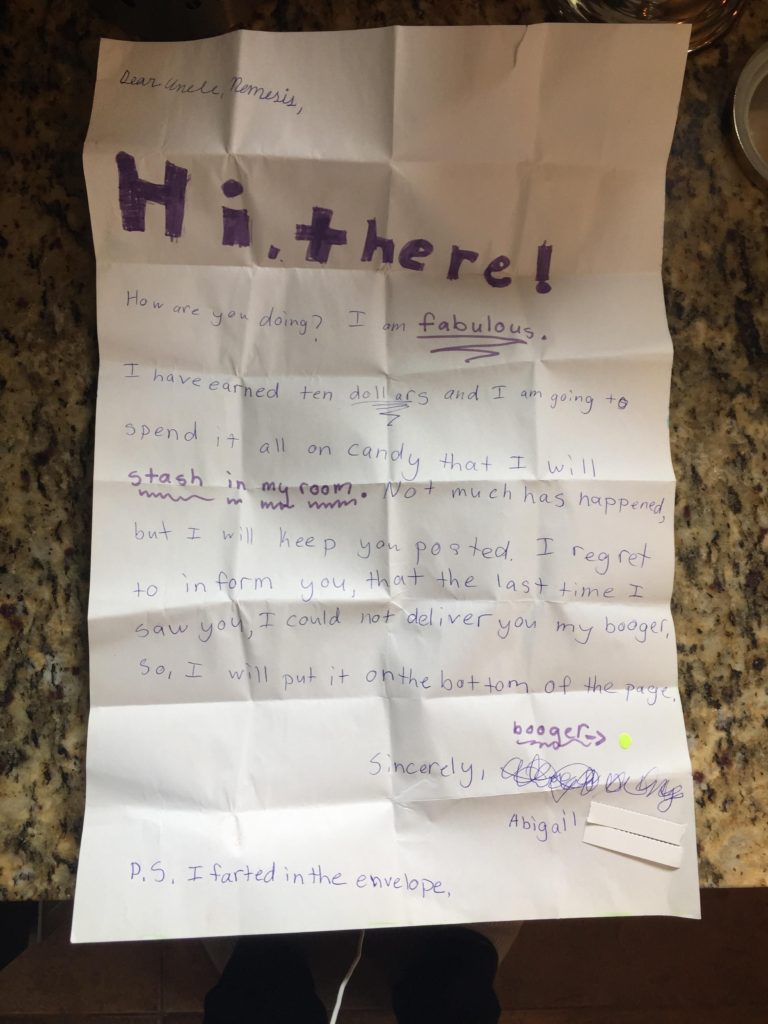 Dear Uncle, Nemesis,
Hi, there!
How are you doing? I am fabulous.
I have earned ten dollars and I am going to
spend it all on candy that I will
stash in my room. Not much has happened,
but I will keep you posted. I regret
to inform you, that the last time I
saw you, I could not deliver you my booger,
so, I will put it on the bottom of the page.
booger→
Sincerely,
Abigail
P.S. I farted in the envelope.